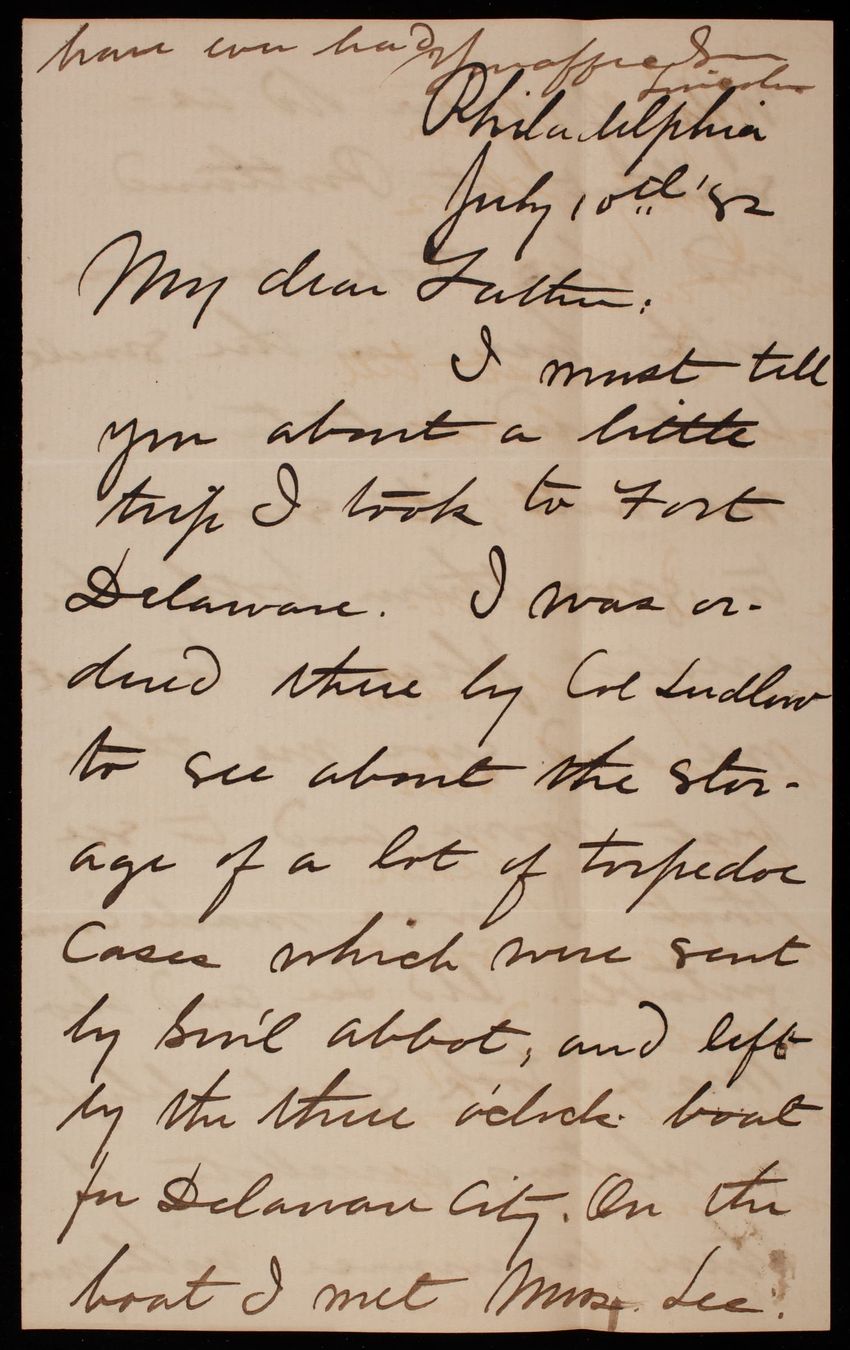 have ever had. Your affec. Son
Philadelphia
July 10th '82
My dear Father:
I must tell
you about a little
trip I took to Fort
Delaware. I was or-
dered there by Col Ludlow
to see about the stor-
age of a lot of torpedoe
Cases which were sent
by Gen'l Abbot, and left
by the three o'clock boat
for Delaware City. On the
boat I met Mrs. Lee.